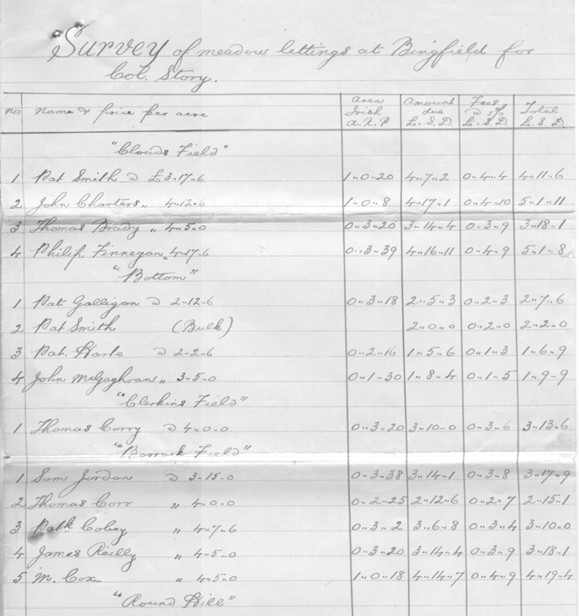 Survey of meadow lettings at Bingfield for
Col. Story.
No Name & price per acre Area Irish A.R.P Amount due £.S.D Fees @ 1/- £.S.D Total £.S.D
"Clouds Field"
1 Pat Smith @ £3-17-6 1"0"20 4"7"2 0"4"4 4"11"6
2 John Charters " 4-12-6 1"0"8 4"17"1 0"4"10 5"1"11
3 Thomas Brady " 4-5-0 0"3"20 3"14"4 0"3"9 3"18"1
4 Philip Finnegan " 4-17-6 0"3"39 4"16"11 0"4"9 5"1"8
"Bottom"
1 Pat Galligan @ 2-12-6 0"3"18 2"5"3 0"2"3 2"7"6
2 Pat Smith (Bulk) 2"0"0 0"2"0 2"2"0
3 Pat. Harte @ 2-2-6 0"2"16 1"5"6 0"1"3 1"6"9
4 John McGaghran " 3-5-0 0"1"30 1"8"4 0"1"5 1"9"9
"Clerkins Field"
1 Thomas Corry @ 4-0-0 0"3"20 3"10"0 0"3"6 3"13"6
"Barrack Field"
1 Sam Jordan @ 3-15-0 0"3"38 3"14"1 0"3"8 3"17"9
2 Thomas Corr " 4-0-0 0"2"25 2"12"6 0"2"7 2"15"1
3 Patk Coby " 4-7-6 0"3"2 3"6"8 0"3"4 3"10"0
4 James Reilly " 4-5-0 0"3"20 3"14"4 0"3"9 3"18"1
5 M. Cox " 4-5-0 1"0"18 4"14"7 0"4"9 4"19"4
"Round Hill"